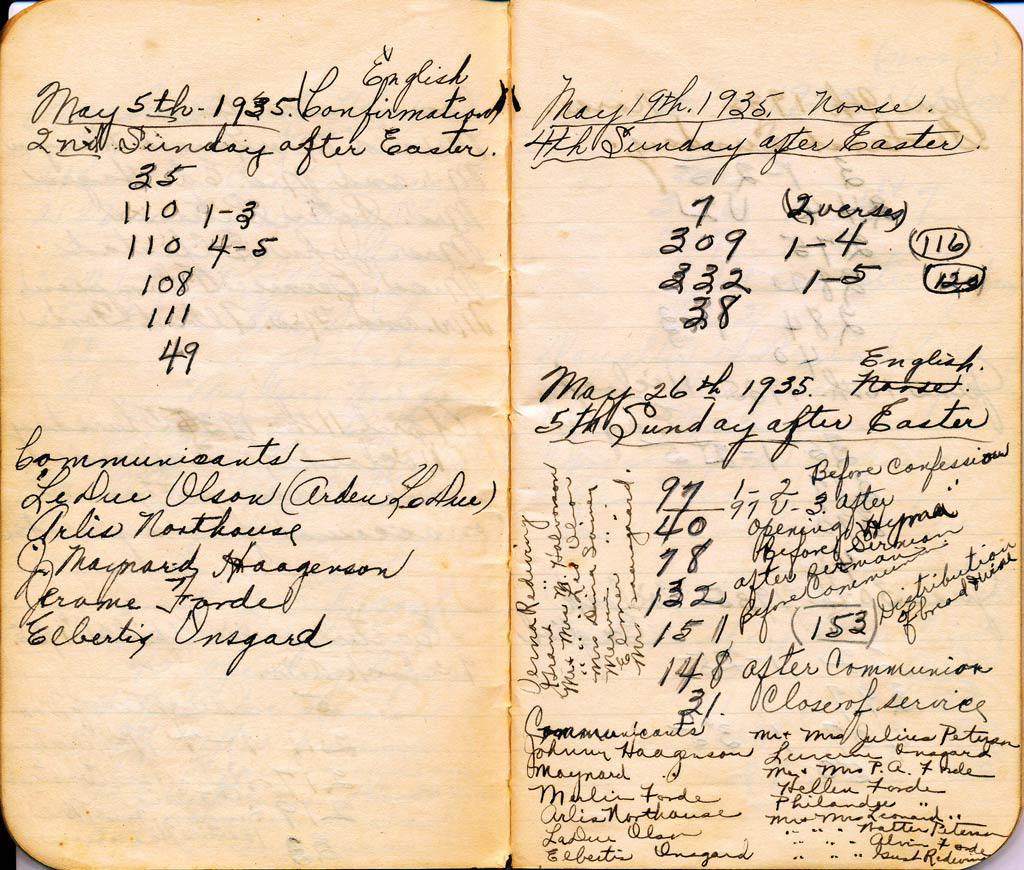 English
May 5th - 1935. (Confirmation)
2nd Sunday after Easter.
35
110 1-3
110 4-5
108
111
49
Communicants —
LeDue Olson (Arden LeDue)
Arlis Northouse
J. Maynard Haagenson
Jerome Forde
Elbertis Onsgard
May 19th. 1935. Norse.
4th Sunday after Easter.
7 (2 verses)
309 1-4 (116)
332 1-5 (120)
38
English.
May 26th 1935. Norse.
5th Sunday after Easter
97 1-2 Before Confession
97 V-3 after "
40 Opening Hymn
78 Before Sermon
132 after Sermon
151 Before Communion
(153) Distribution
of bread & wine
148 after Communion
31. Close of service
Verna Redwing
Grant "
Mr + Mrs M. Halvorson
" " " Led Olson
Mrs Dena
Mervin "
Elmer "
Mrs
Communicants
Johnny Haagenson
Maynard "
Merlin Forde
Arlis Northouse
LaDue Olson
Elbertis Onsgard
Mr + Mrs Julius Peterson
Lucerne Onsgard
Mr + Mrs P.A. Forde
Hellen Forde
Philander "
Mr + Mrs Leonard "
" " " Walter Peterson
" " " Alvin Forde
" " " Gust Redwing